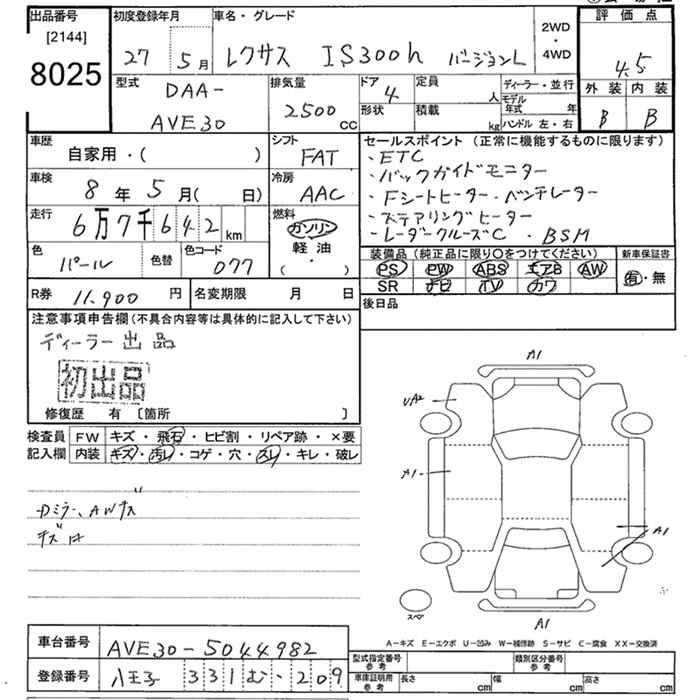 出品番号
[2144]
8025
初度登録年月
27 5月
車名・グレード
レクサス IS300h バージョンL
2WD
・
4WD
評価点
4.5
外装 内装
B B
型式
DAA-
AVE30
排気量
2500 CC
ドア
4
形状
定員
人
積載
kg
ディーラー・並行
モデル年式 年
ハンドル 左・右
車歴
自家用・( )
シフト
FAT
車検
8年5月( 日)
冷房
AAC
走行
6万7千642km
燃料
ガソリン
軽油
( ・ )
色
パール
色替
色コード
077
R券
11,900円
名変期限 月 日
セールスポイント(正常に機能するものに限ります)
・ETC
・バックガイドモニター
・Fシートヒーター・ベンチレーター
・ステアリングヒーター
・レーダークルーズC ・BSM
装備品(純正品に限り〇をつけてください)
PS PW ABS エアB AW
SR ナビ TV カワ
新車保証書
有・無
後日品
注意事項申告欄(不具合内容等は具体的に記入して下さい)
ディーラー出品
初出品
修復歴 有 〔箇所 〕
検査員記入欄
FW キズ・飛石・ヒビ割・リペア跡・×要
内装 キズ・汚レ・コゲ・穴・スレ・キレ・破レ
A1
UA2
A1
A1
A1
スペア
A-キズ E-エクボ U-凹み W-補修跡 S-サビ C-腐食 XX-交換済
車台番号
AVE30-5044982
登録番号
八王子 331 む・209
型式指定番号
参考
類別区分番号
参考
車庫証明用
参考
長さ cm 幅 cm 高さ cm